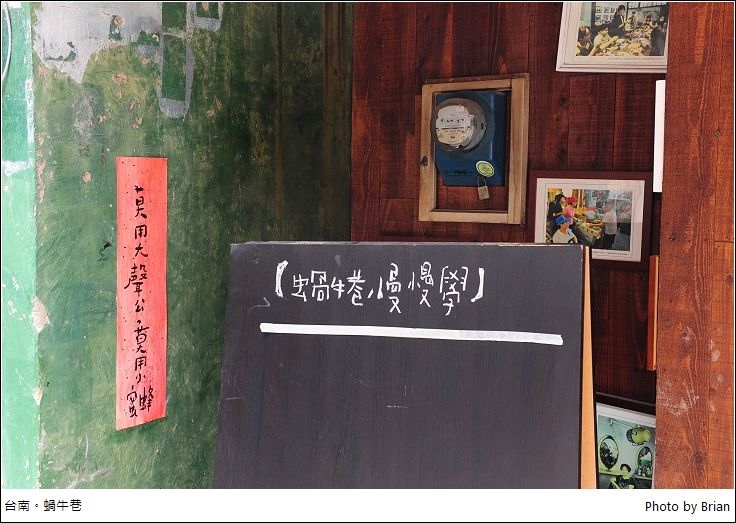 莫用大聲公，莫用小蜜蜂
【蝸牛巷慢慢學】
台南。蝸牛巷
Photo by Brian